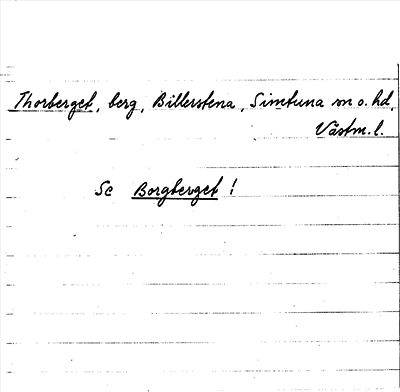 Thorberget, berg, Billerstena, Simtuna sn o. hd,
Västm. l.
Se Borgberget!